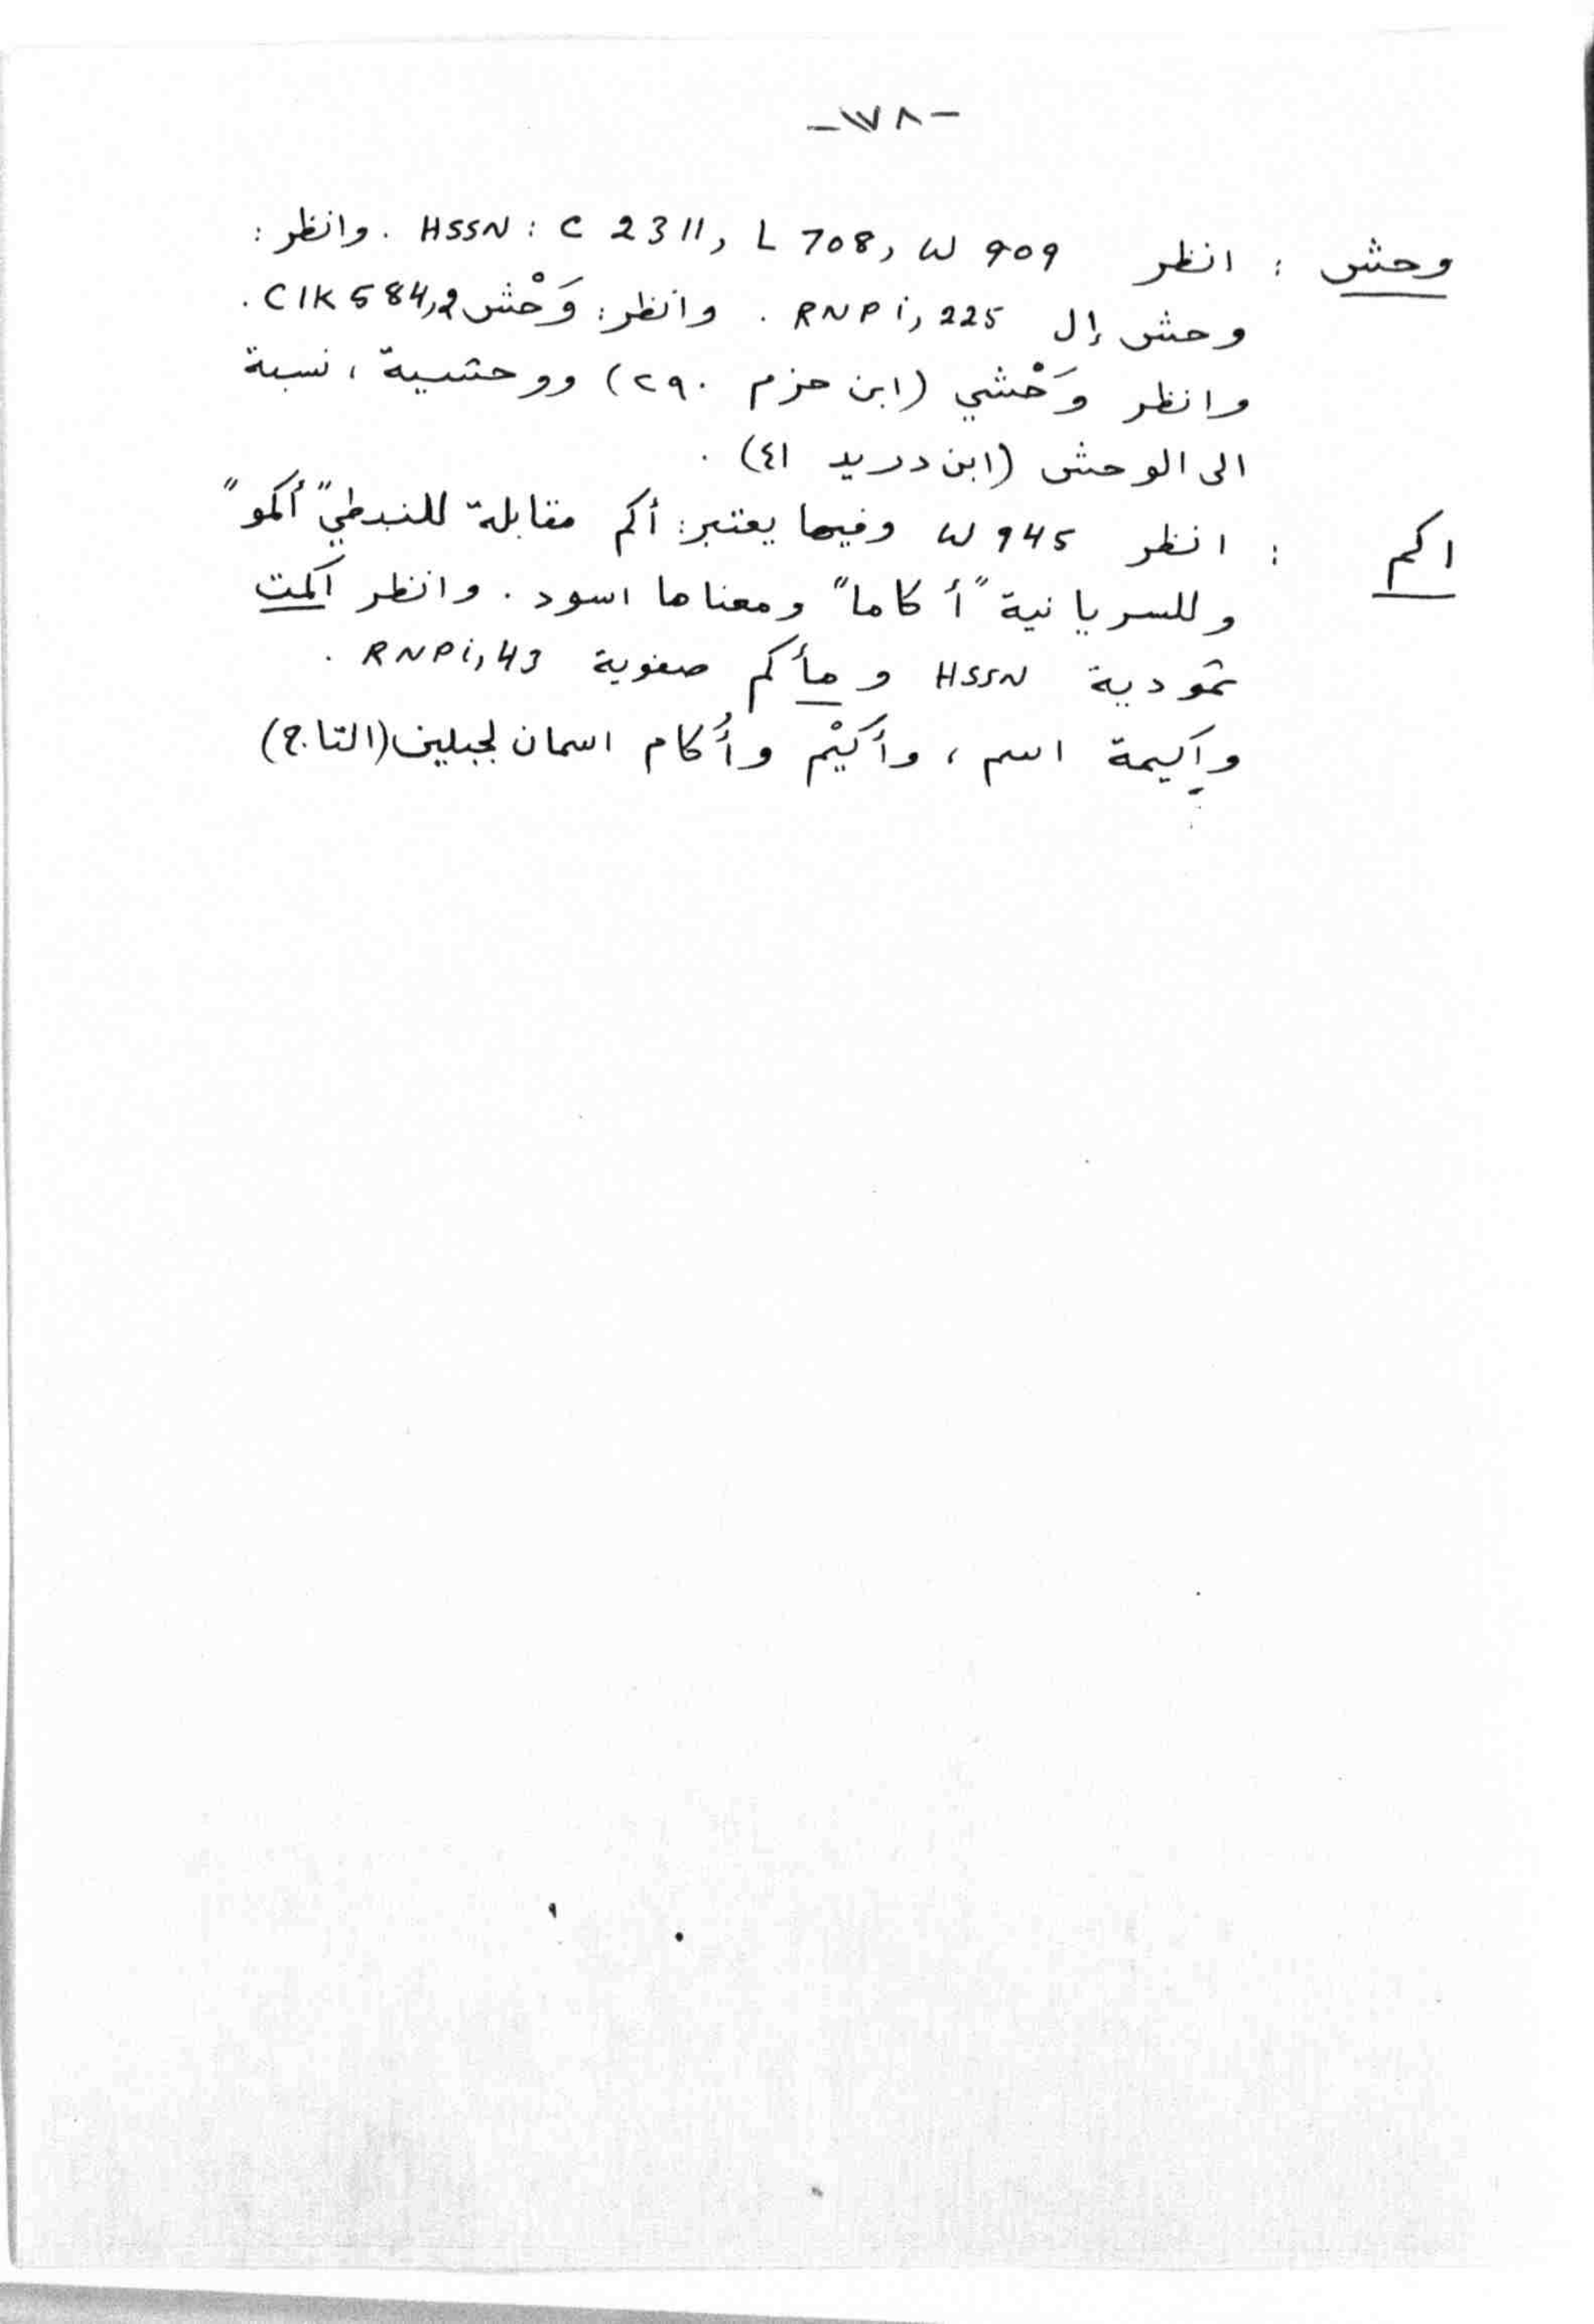 -١٧٨-
وحش : انظر HSSN : C 2311, L 708, W 909 . وانظر :
وحش إل RNP i, 225 . وانظر: وَحْش CIK 584,2 .
وانظر وَحْشي (ابن حزم ٢٩٠) ووحشية ، نسبة
الى الوحش (ابن دريد ٤١) .
اكم : انظر W 945 وفيها يعتبر: أكم مقابلة للنبطي "أكمو"
وللسريانية "أكاما" ومعناها اسود . وانظر اكمت
ثمودية HSSN و مأكم صفوية RNP i, 43 .
وإكيمة اسم ، وأكَيْم وأُكام اسمان لجبلين (التاج)